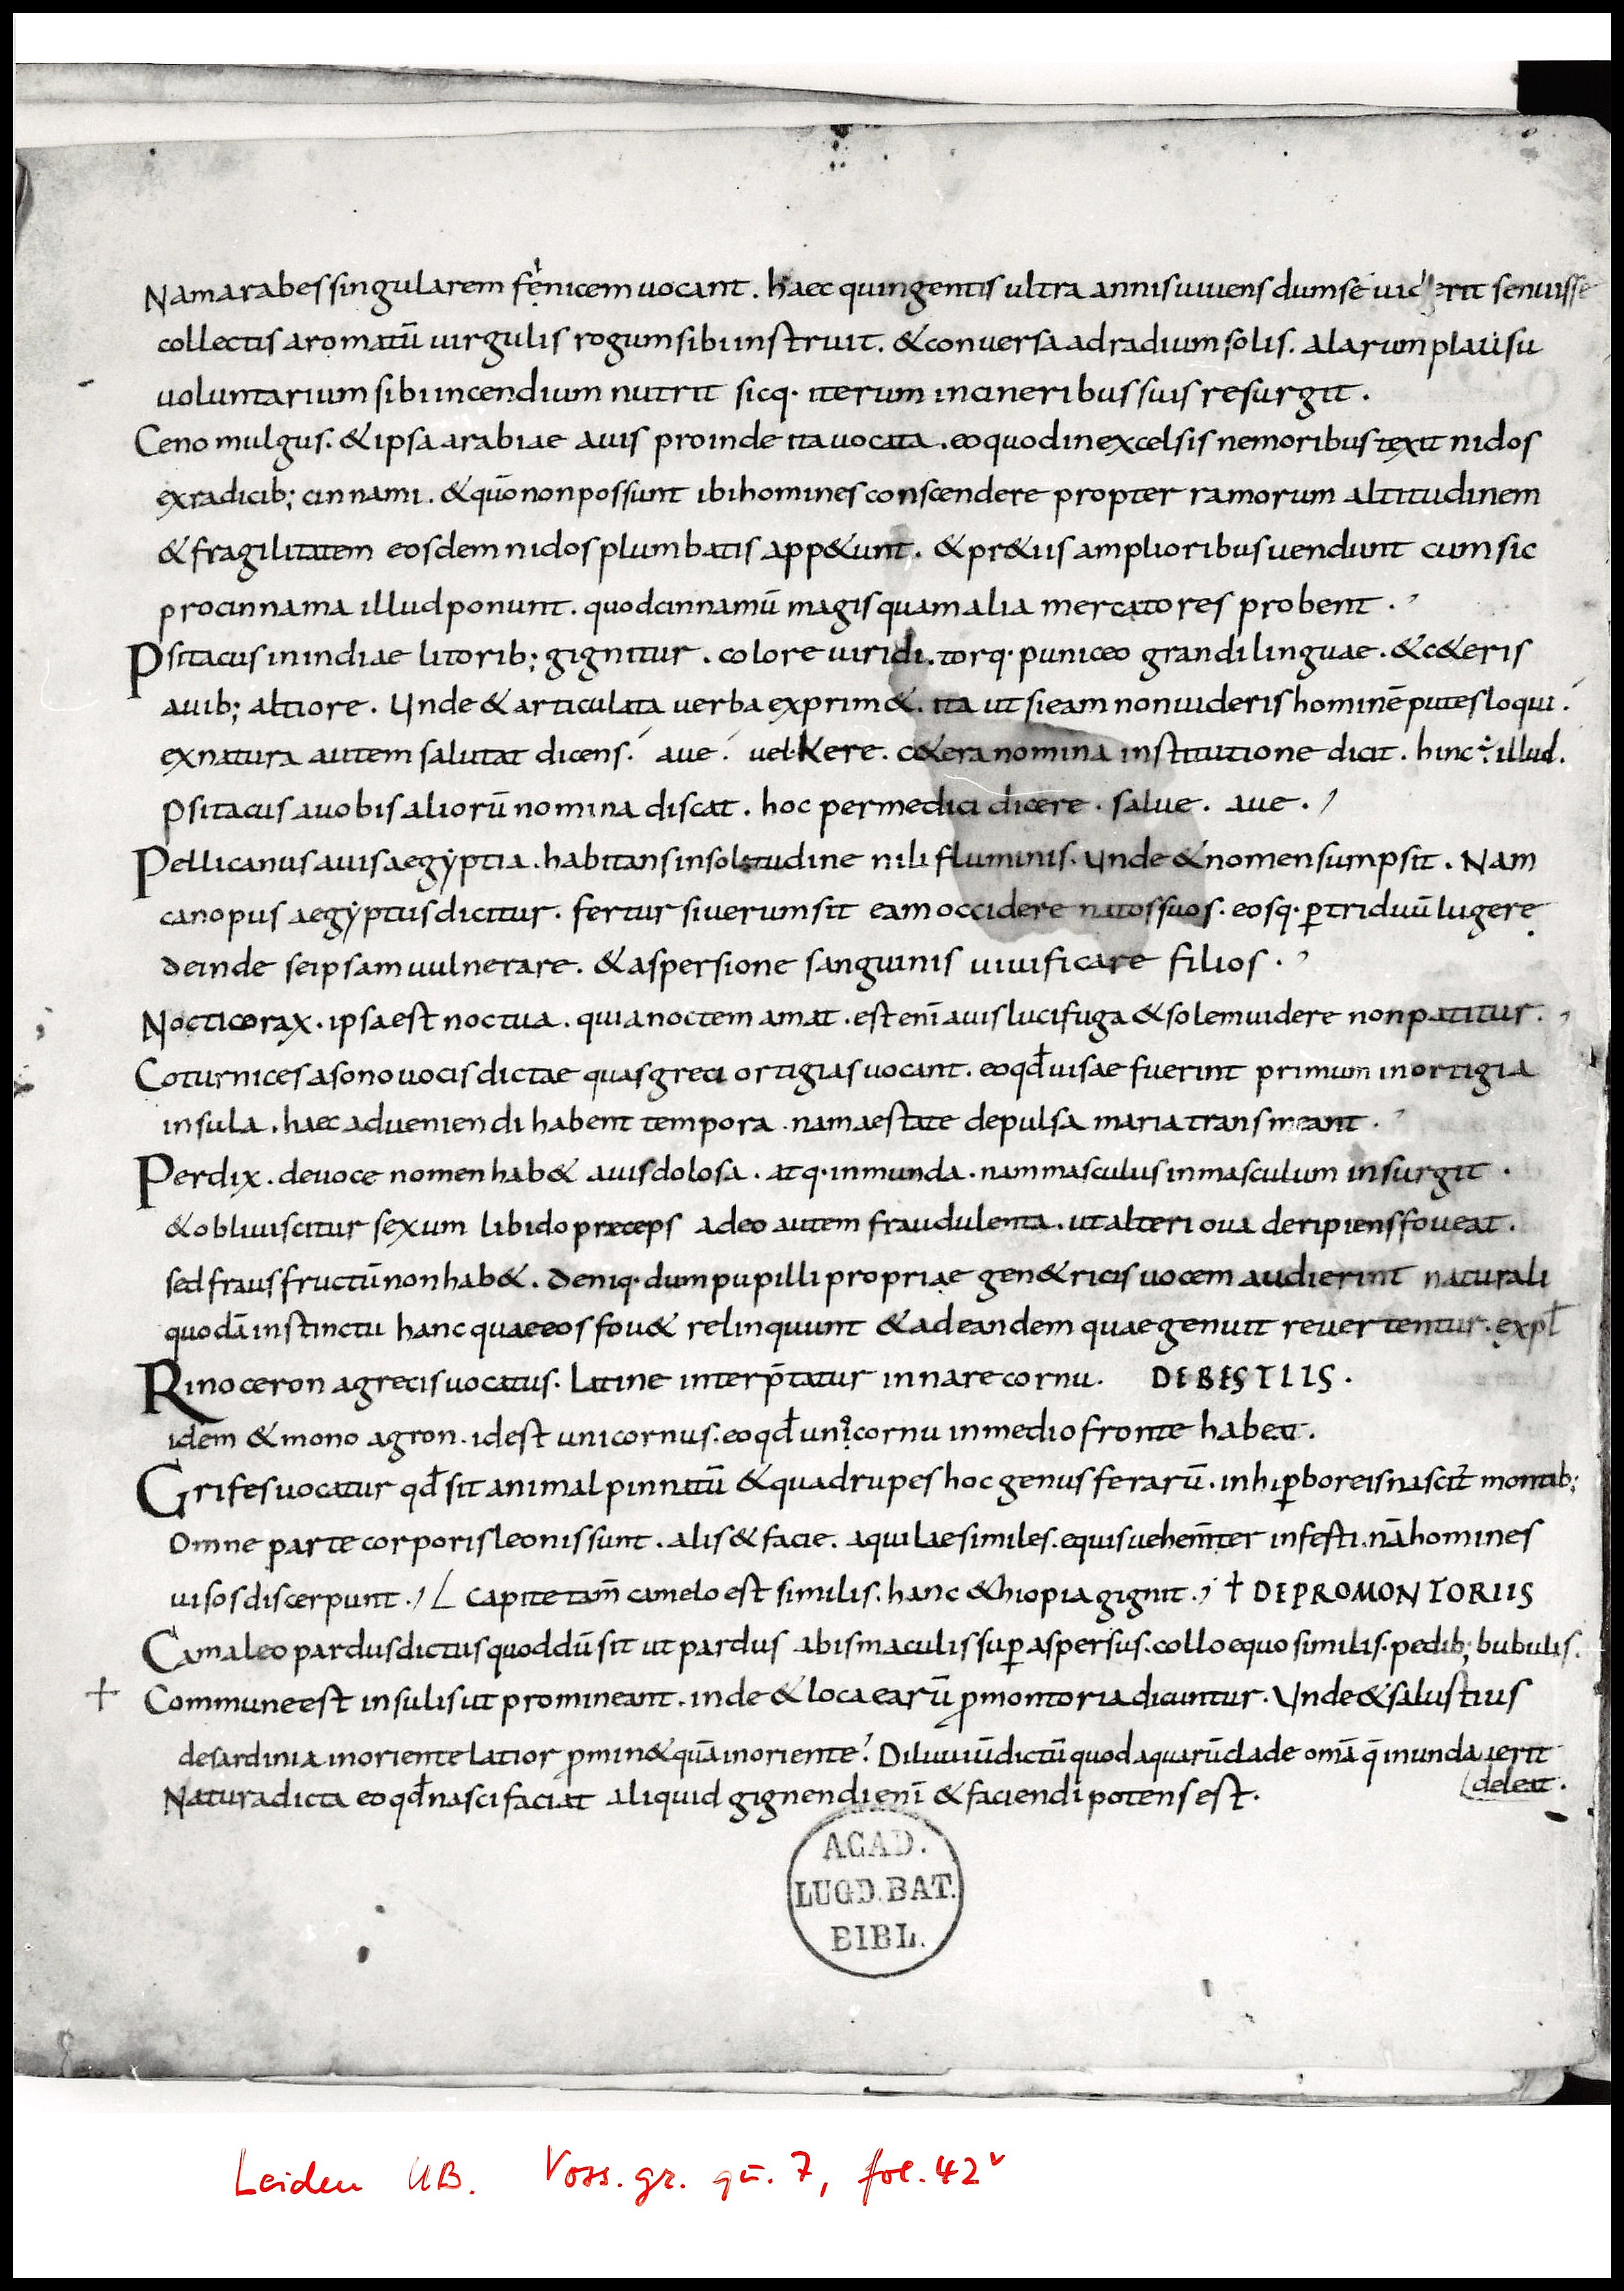 Nam arabes singularem fenicem uocant. haec quingentis ultra annis uiuens dum se uiderit senuisse
collectis aromatū uirgulis rogum sibi instruit. & conuersa ad radium solis. alarum plausu
uoluntarium sibi incendium nutrit sicq· iterum in cineribus suis resurgit.
Ceno mulgus. & ipsa arabiae auis proinde ita uocata. eo quod in excelsis nemoribus texit nidos
ex radicib; cinnami. & quō non possunt ibi homines conscendere propter ramorum altitudinem
& fragilitatem eosdem nidos plumbatis app&unt. & pr&iis amplioribus uendunt cum sic
pro cinnama illud ponunt. quod cinnamū magis quam alia mercatores probent.
Psitacus in indiae litorib; gignitur. colore uiridi. torq· puniceo grandi linguae. & c&eris
auib; altiore. Unde & articulata uerba exprim&. ita ut si eam non uideris hominē putes loqui.
ex natura autem salutat dicens. aue. uel kere. c&era nomina institutione dicit. hinc ÷ illud.
psitacus a uobis aliorū nomina discat. hoc per me dici dicere. salue. aue.
Pellicanus auis aegyptia. habitans in solitudine nili fluminis. Unde & nomen sumpsit. Nam
canopus aegyptus dicitur. fertur si uerum sit eam occidere natos suos. eosq· p̱ triduū lugere
deinde se ipsam uulnerare. & aspersione sanguinis uiuificare filios.
Nocticorax. ipsa est noctua. quia noctem amat. est enī auis lucifuga & solem uidere non patitur.
Coturnices a sono uocis dictae quas greci ortigias uocant. eo qd̄ uisae fuerint primum in ortigia
insula. haec adueniendi habent tempora. nam aestate depulsa maria transmeant.
Perdix. de uoce nomen hab& auis dolosa. atq· inmunda. nam masculus in masculum insurgit.
& obliuiscitur sexum libido preceps adeo autem fraudulenta. ut alteri oua deripiens foueat.
sed fraus fructū non hab&. deniq· dum pupilli propriae gen&ricis uocem audierint naturali
quodā instinctu hanc quae eos fou& relinquunt & ad eandem quae genuit reuertentur. expł
Rinoceron a grecis uocatus. Latine interp̄tatur in nare cornu. DE BESTIIS.
idem & mono agron. id est unicornus. eo qd̄ uni cornu in medio fronte habeat.
Grifes uocatur qd̄ sit animal pinnatū & quadrupes hoc genus ferarū. in hip̱boreis nascit̄ montib;
Omne parte corporis leonis sunt. alis & facie. aquilae similes. equis uehem̄ter infesti. nā homines
uisos discerpunt. Capite tam̄ camelo est similis. hanc &hiopia gignit. † DE PROMONTORIIS
Camaleo pardus dictus quod dū sit ut pardus abis maculis sup̱ aspersus. collo equo similis. pedib; bubulis.
† Commune est insulis ut promineant. inde & loca earū p̱montoria dicuntur. Unde & salustius
de sardinia in oriente latior p̱min& quā in oriente. Diluuiū dictū quod aquarū clade omā q̄ inundauerit
deleat.
Natura dicta eo qd̄ nasci faciat aliquid gignendi enī & faciendi potens est.
ACAD.
LUGD. BAT.
BIBL.
Leiden UB. Voss. gr. qu. 7, fol. 42v